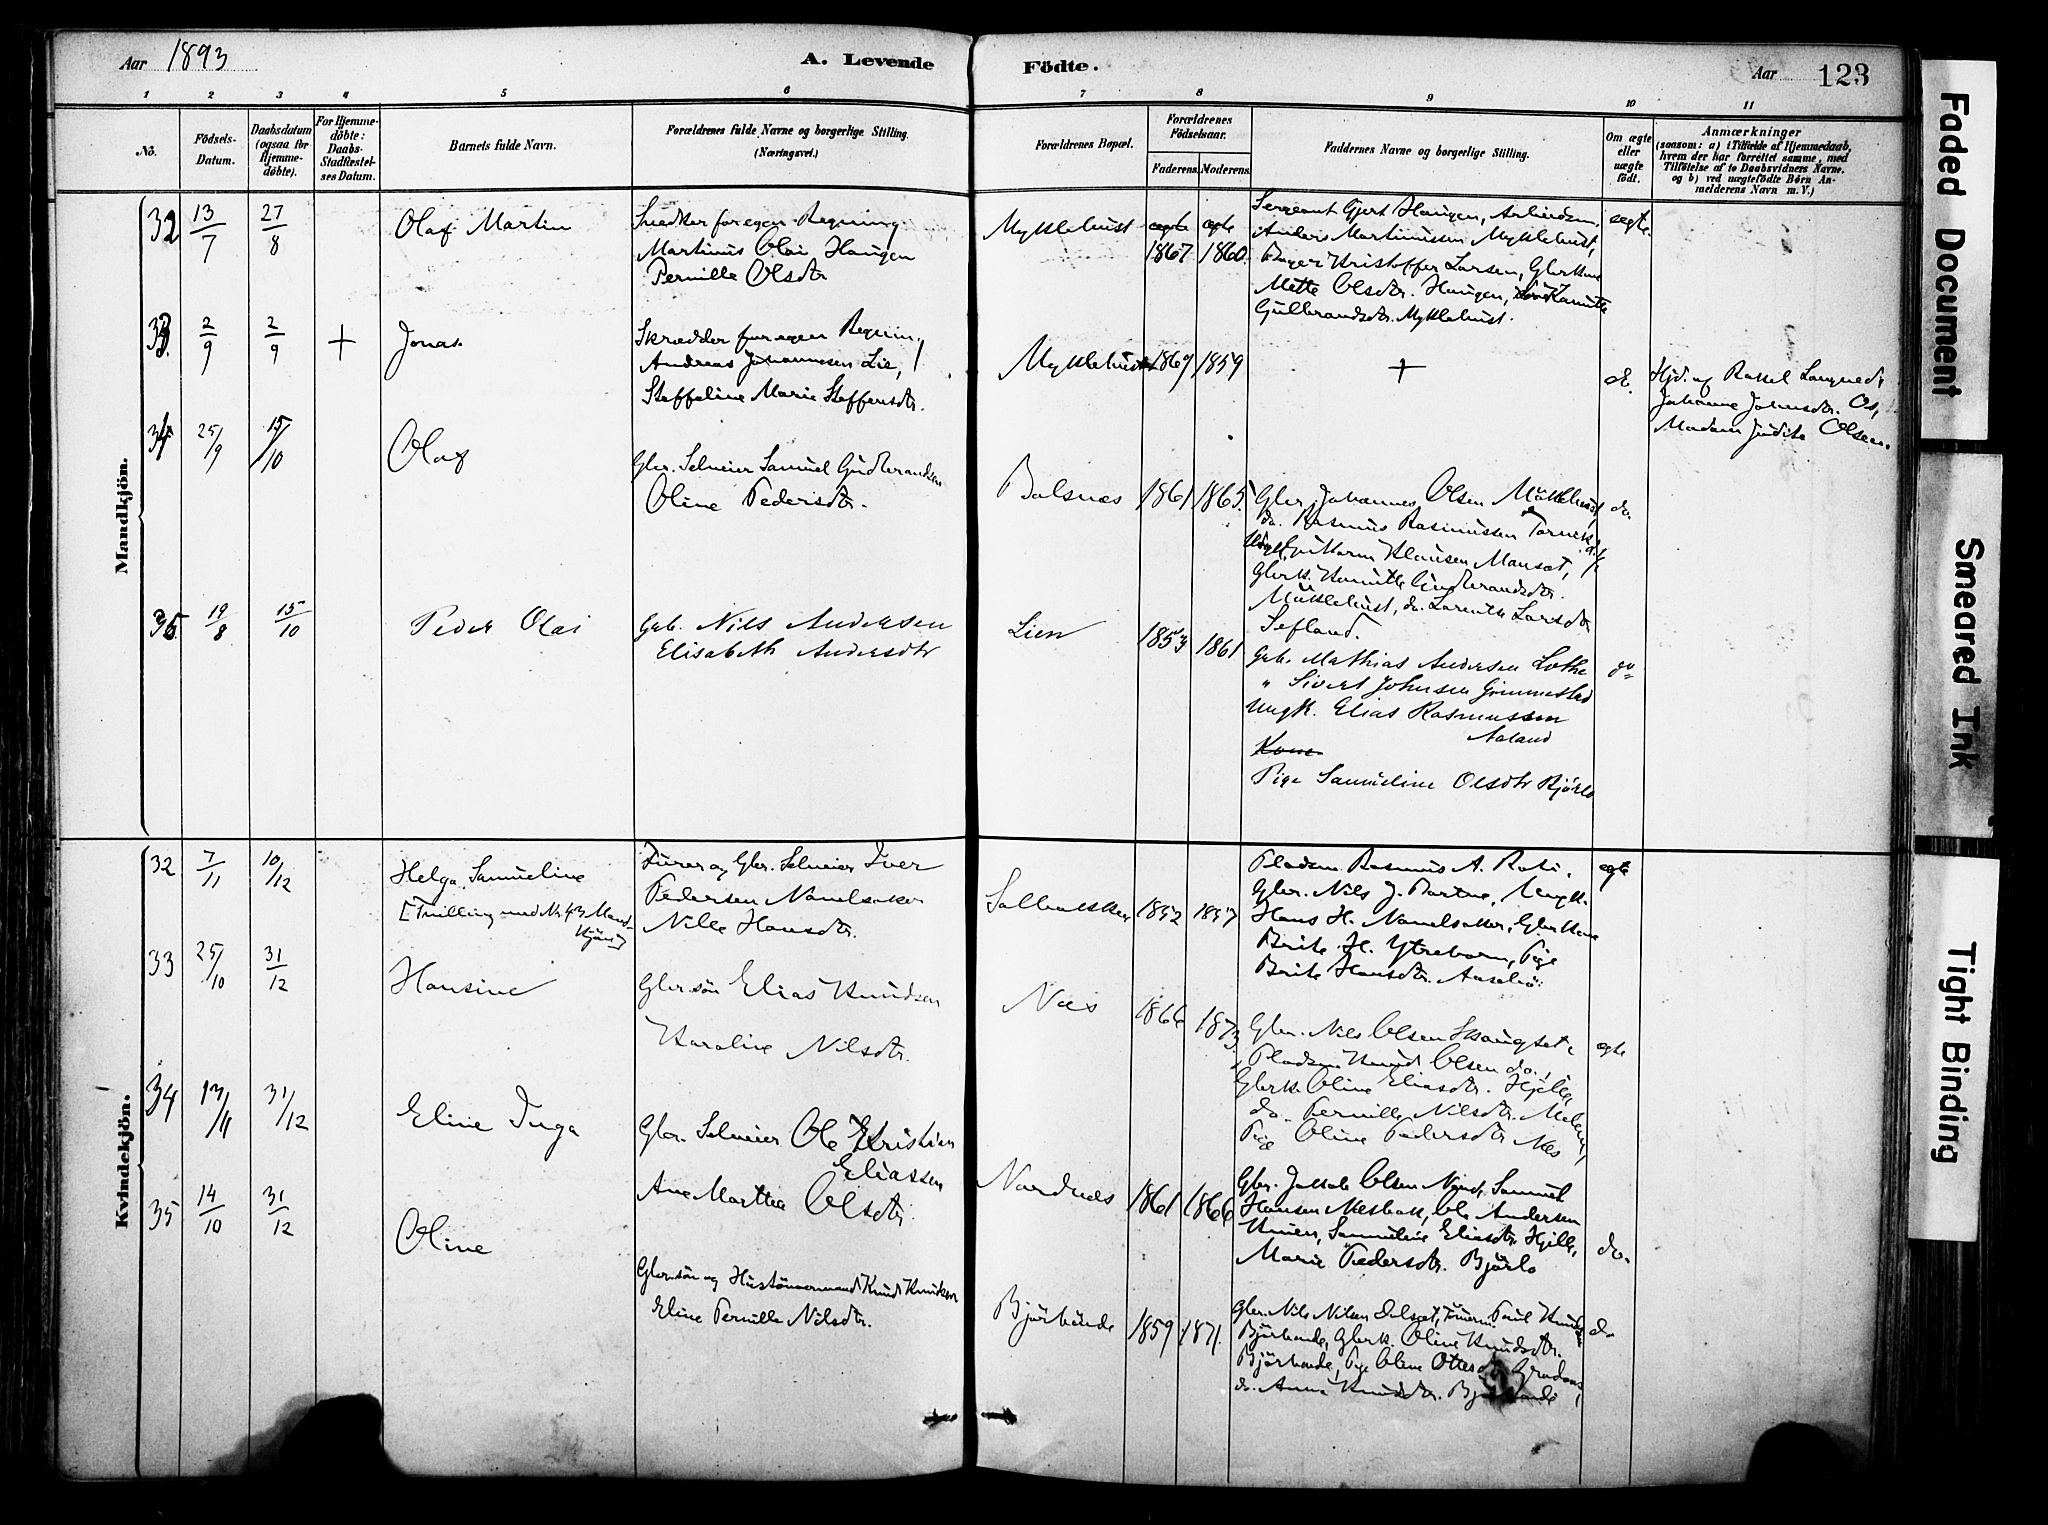 Aar 1893
A. Levende
Födte.
Aar
123
1 2 3 4 5 6 7 8 9 10 11
No.
Födsels-
Datum.
Daabsdatum
(ogsaa for
Hjemme-
döbte).
For Hjemme-
döbte:
Daabs-
Stadfæstel-
ses Datum.
Barnets fulde Navn.
Forældrenes fulde Navne og borgerlige Stilling.
(Næringsvei.)
Forældrenes Bopæl.
Forældrenes
Födselsaar.
Faderens.
Moderens.
Faddernes Navne og borgerlige Stilling.
Om ægte
eller
uægte
födt.
Anmærkninger
(saasom: a) i Tilfælde af Hjemmedaab,
hvem der har forrettet samme, med
Tilföielse af to Daabsvidners Navne.
og b) ved uægtefödte Börn An-
melderens Navn m. V.)
Mandkjön.
32 13/7 27/8
Olaf Martin
Snedker for egen Regning
Martinus Olai Haugen
Pernille Olsdtr
Myklebust
ægte ægte
1867 1860
Sergeant Gjert Haugen, Arbeidsm.
Anders Martinussen Myklebust,
Kristoffer Larsen, Gbrkone
Mette Olsdtr. Haugen,
Gulbrandsdtr. Myklebust.
ægte.
33. 2/9 2/9 +
Jonas
Skrædder for egen Regning
Andreas Johannessen Lie,
Steffeline Marie Steffensdtr.
Myklebust 1869 1859
+
do.
Johanne Johnsdtr. Os,
Madam Judite Olsen.
34 25/9 15/10
Olaf
Gbr. Selveier Samuel Gudbrandsen
Oline Pedersdtr.
Balsnes 1861 1865.
Gbr. Johannes Olsen Mÿklebust,
do. Rasmus Rasmussen
Klausen
Gbrk. Gudbrandsdtr.
Mÿklebust, do. Larsdtr
Sefland.
do.
35. 19/8 15/10
Peder Olai
Gab. Nils Andersen
Elisabeth Andersdtr
Lien
1853 1861
Gab. Mathias Andersen Lothe
" Sivert Johnsen Gimmestad
Ungk. Elias Rasmussen
Aaland
Kone
Pige Samueline Olsdtr Bjørlo
do
Kvindekjön.
32 7/11 10/12
Helga Samueline
[Tvilling med Nr. 43 Mand-
kjøn]
og Gbr. Selveier Iver
Pedersen
Nille Hansdtr.
1852 1857
Pladsm. Rasmus A.
Gbr. Nils J. Ungk.
Hans H. Gbrkone
Brite H. Ytrehorn, Pige
Brite Hansdtr.
ægte
33 25/10 31/12
Hansine
Gbr.søn Elias Knudsen
Karoline Nilsdtr.
Nes
1866 1873
Gbr. Nils Olsen Skaugset,
Pladsm. Knud Olsen do.,
Gbrk. Oline Eliasdtr. Hjelle,
do. Pernille Nilsdtr.
Pige Oline Pedersdtr Nes
ægte
34 13/11 31/12
Eline Inga
Gbr. Selveier Ole Kristian
Eliassen
Ane Marthe Olsdtr.
Nordnes 1861 1866
Gbr. Jakob Olsen Samuel
Hansen Ole Andersen
Samueline Eliasdtr. Hjelle,
Marie Pedersdtr. Bjørlo
do.
35 14/10 31/12
Oline
Gbr.søn og Hustømmermand Knud Knudsen
Eline Pernille Nilsdtr.
Bjørhovde
1859 1871.
Gbr. Nils Nilsen Paul Knudsen
Bjørhovde, Gbrk. Oline Knudsdtr.
Bjørhovde, Pige Oline Ottesdtr
do. Anna Knudsdtr. Bjørhovde
do
Faded Document
Smeared Ink
Tight Binding